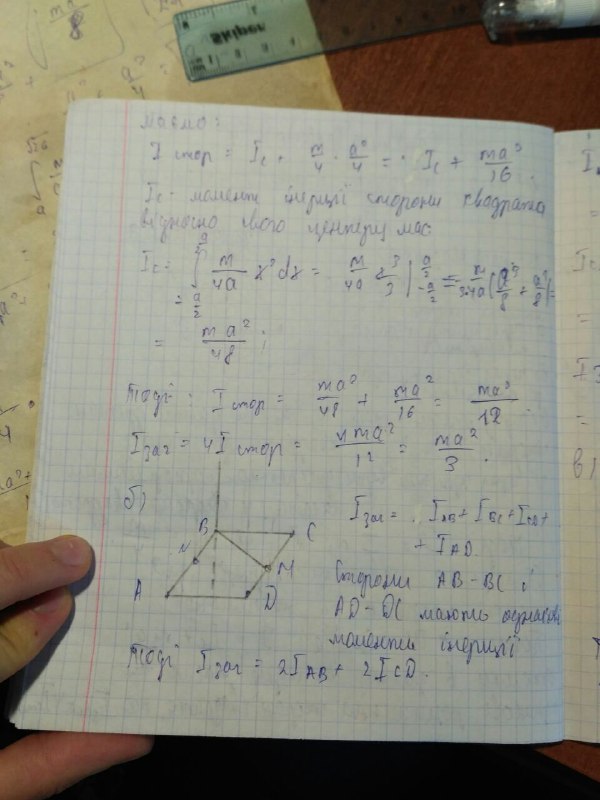 Skiper
ma²
8
маємо:
I стор = I_c + m/4 · a²/4 = I_c + ma²/16.
I_c - момент інерції сторони квадрата
відносно свого центру мас
I_c = ∫_{-a/2}^{a/2} m/4a x² dx = m/4a x³/3 |_{-a/2}^{a/2} = m/3·4a (a³/8 + a³/8) =
= ma²/48 ;
Тоді: I стор = ma²/48 + ma²/16 = ma²/12.
I заг = 4I стор = 4ma²/12 = ma²/3.
б)
I заг = I_AB + I_BC + I_CD +
+ I_AD.
B C
N M
A D
Сторони AB-BC і
AD-DC мають однакові
моменти інерції
Тоді I заг = 2I_AB + 2I_CD.
в)